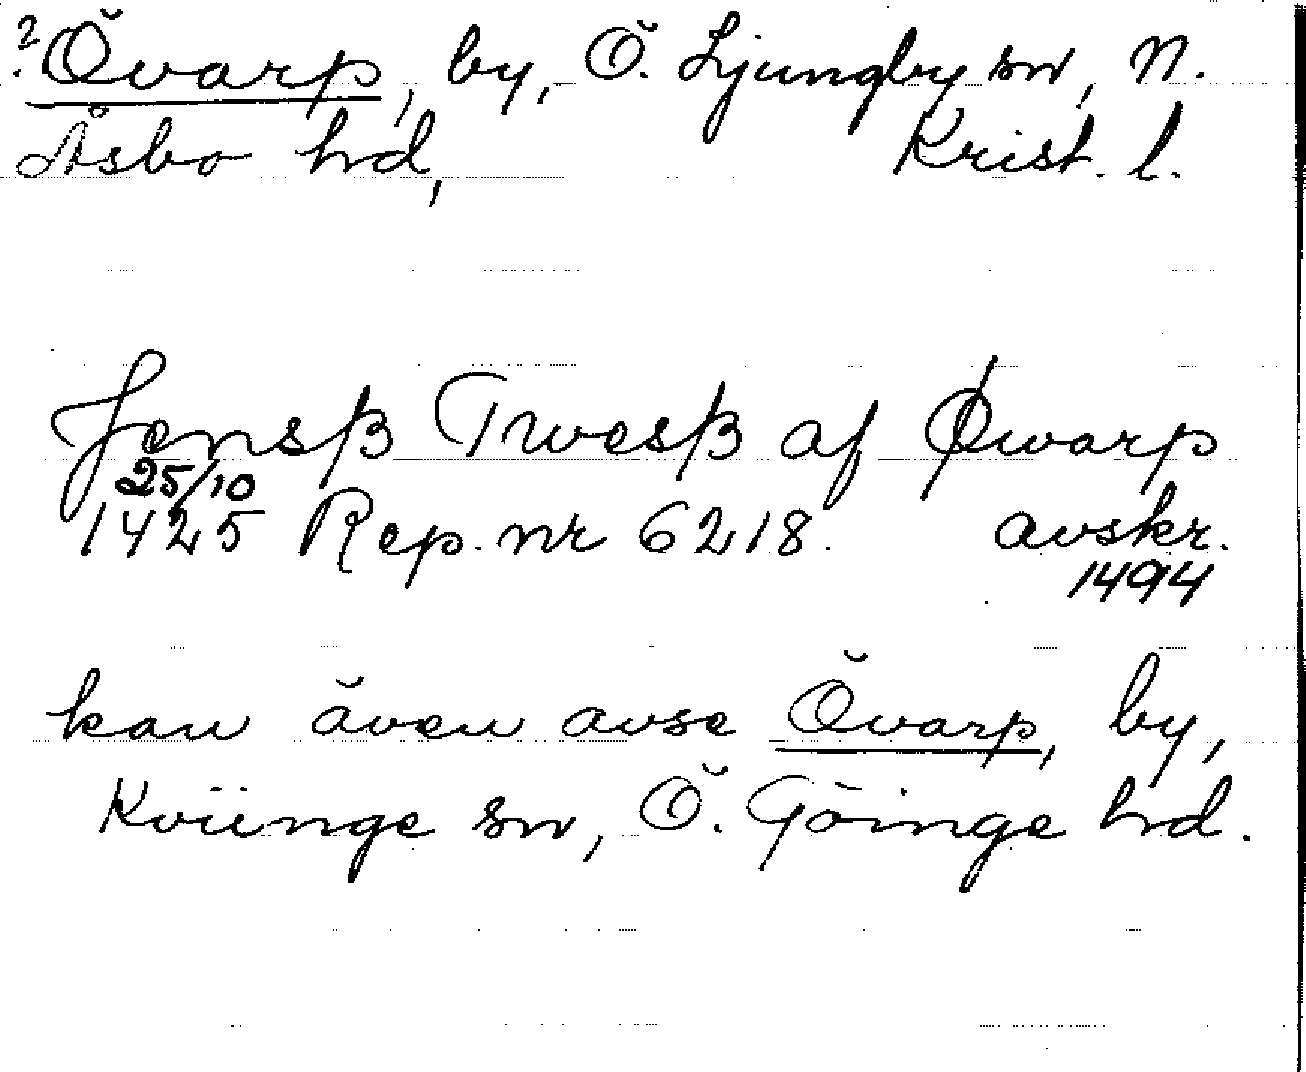 ? Övarp, by, Ö. Ljungby sn, N.
Åsbo hd, Krist. l.
Jensß Twesß af Øwarp
25/10
1425 Rep. nr 6218. avskr.
1494
kan även avse Övarp, by,
Kviinge sn, Ö. Göinge hd.